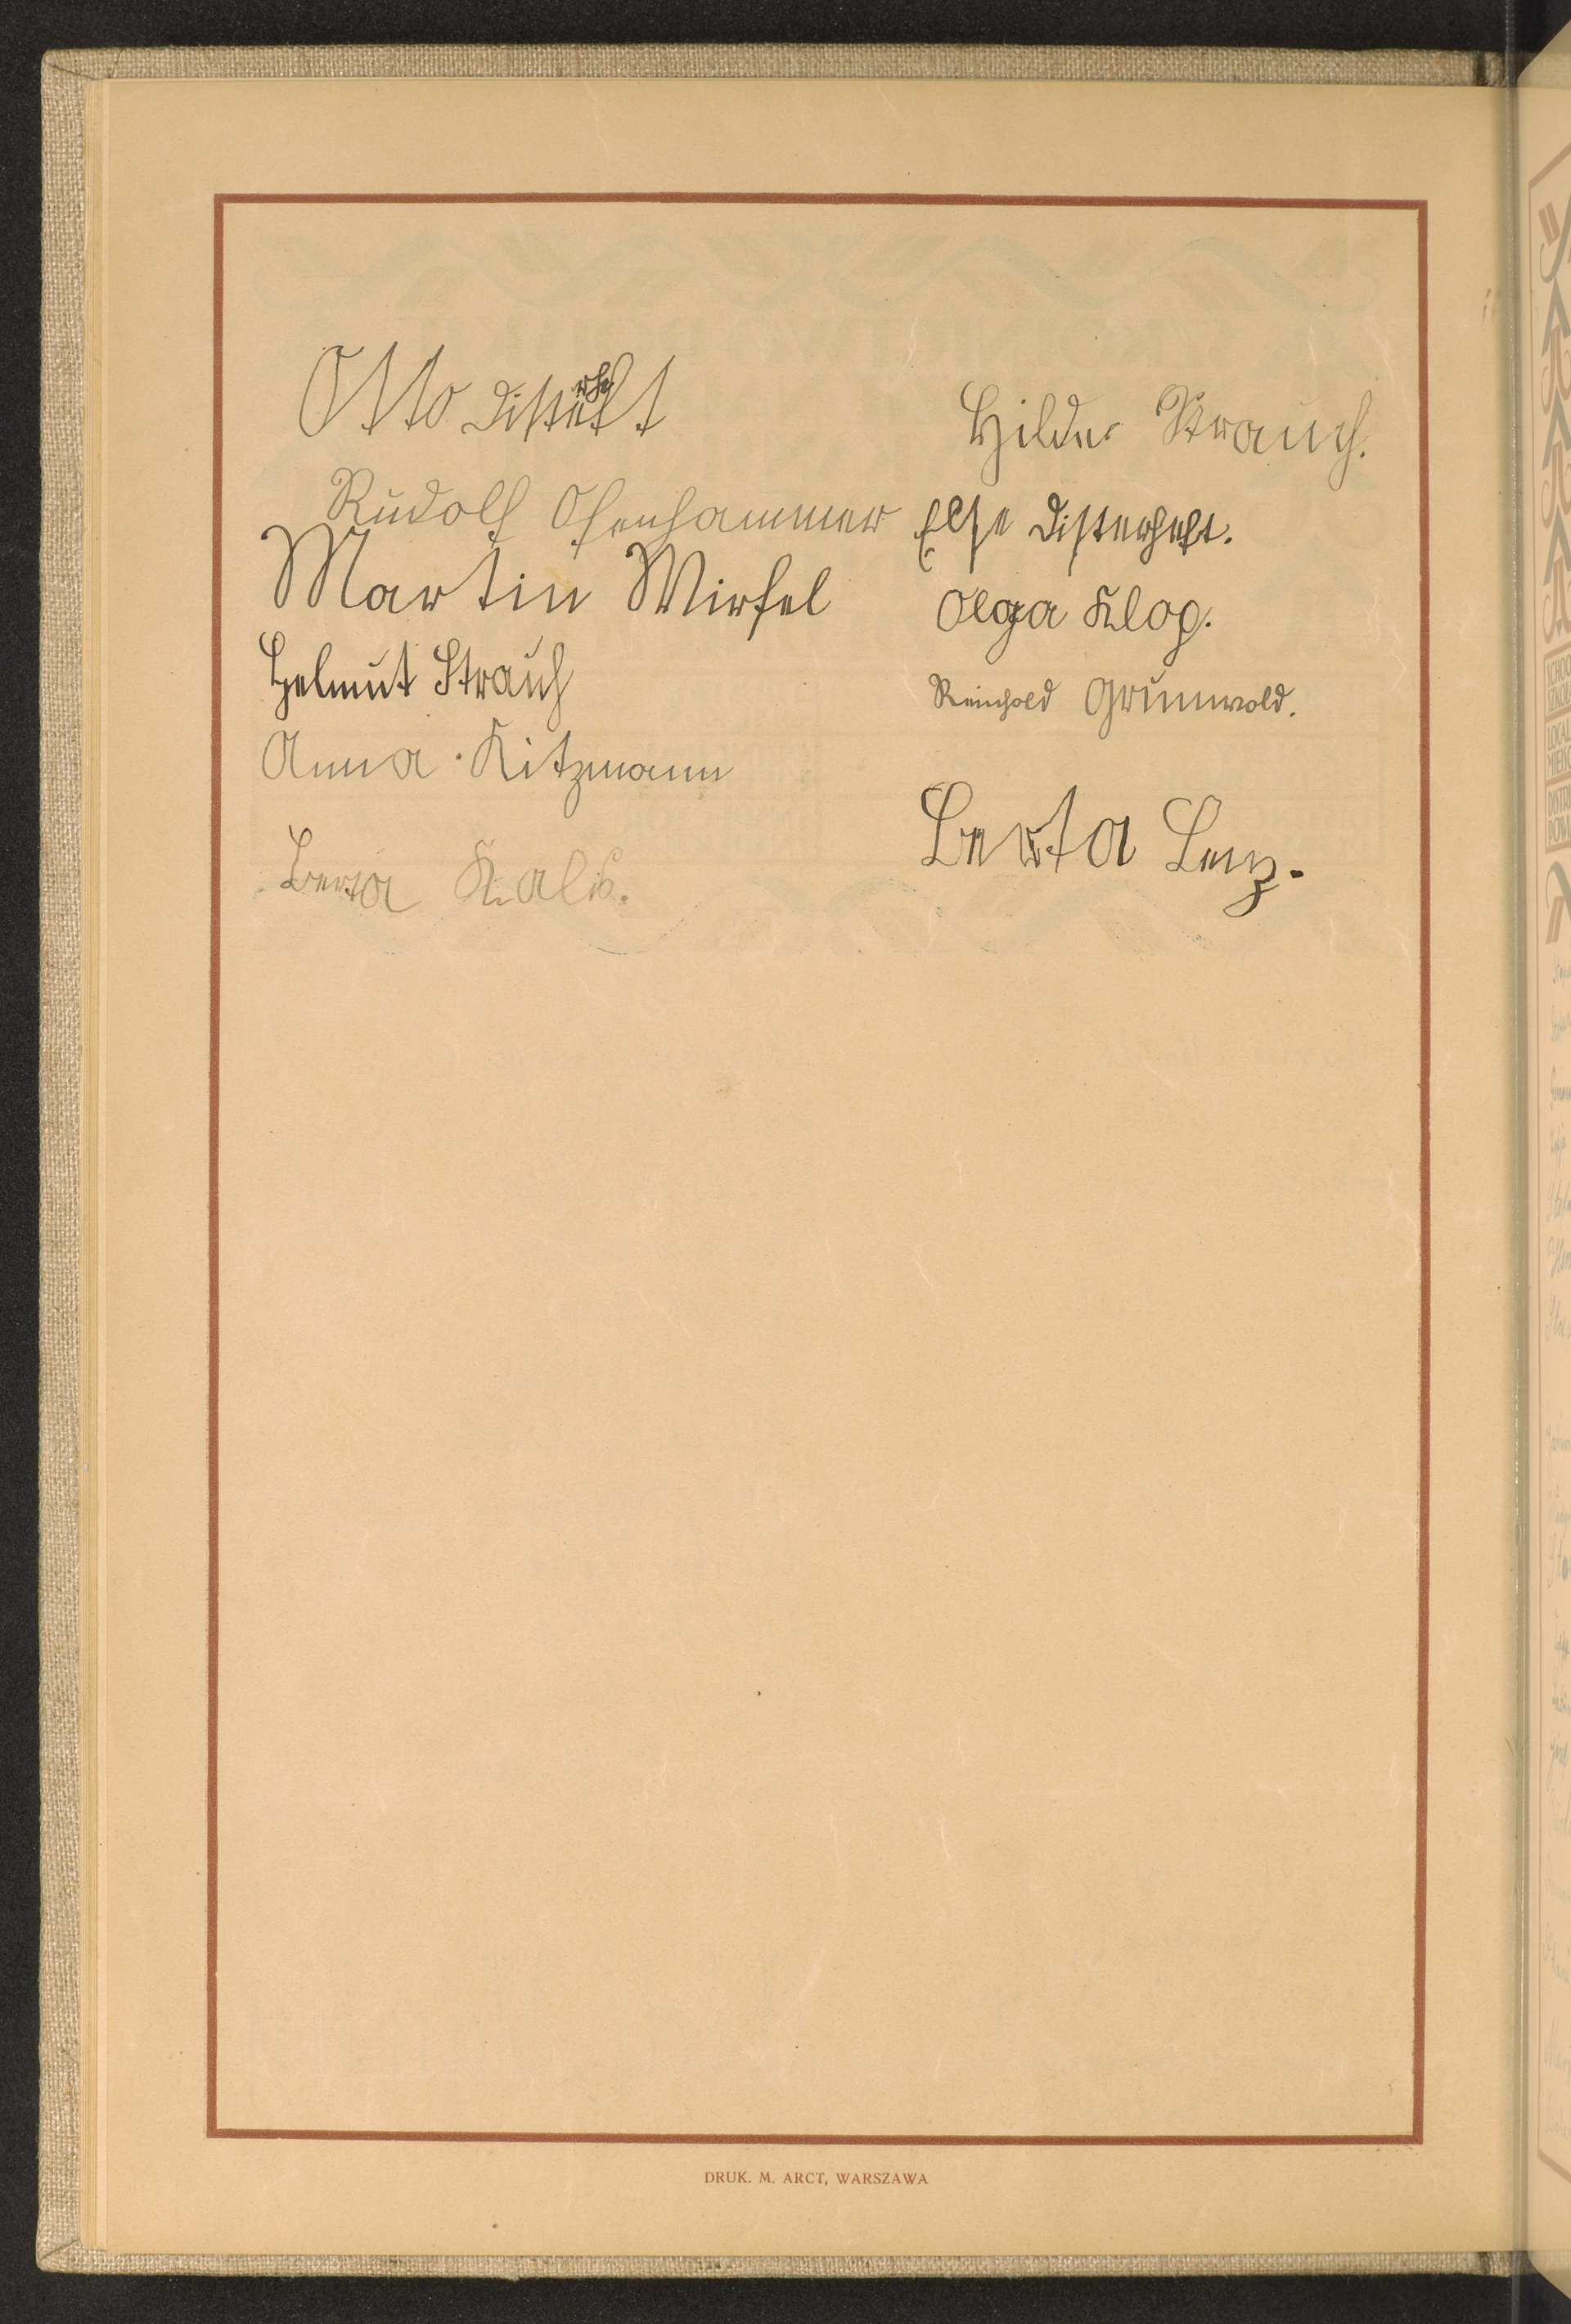 Otto Disterheft
Rudolf Ofenhammer
Martin Wirfel
Helmut Strauch
Anna Kitzmann
Berta Kalis.
Hilde Strauch.
Else Disterheft.
Olga Klog.
Reinhold Grunwald.
Berta Lenz.
DRUK. M. ARCT, WARSZAWA